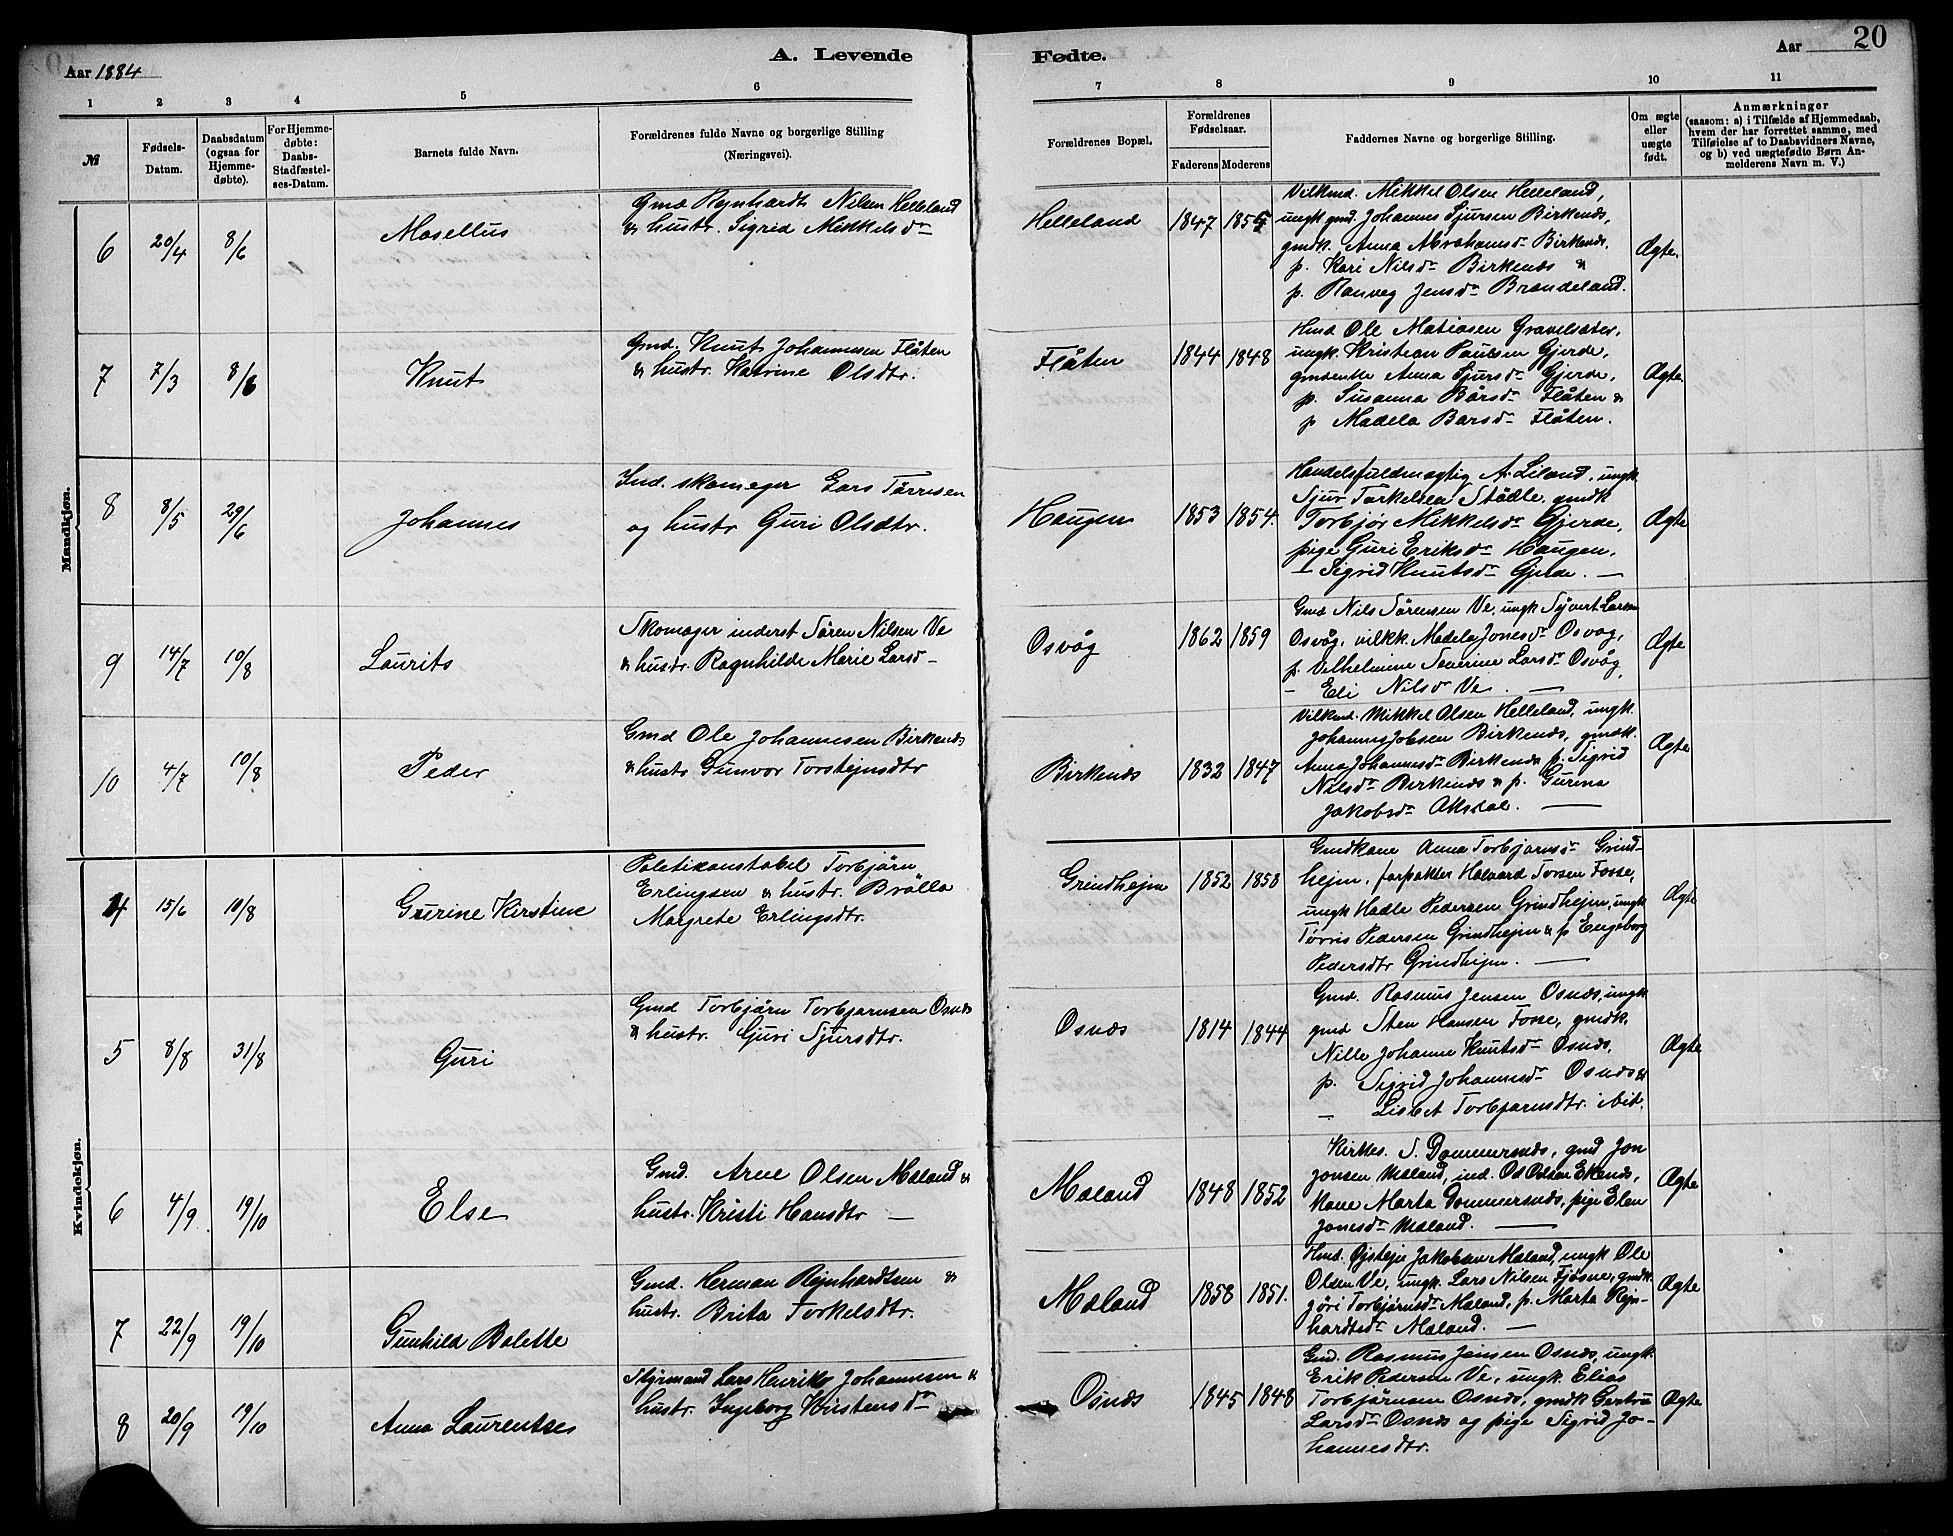 Aar 1884
A. Levende
Fødte.
Aar
20
1 2 3 4 5 6 7 8 9 10 11
№
Fødsels-
Datum.
Daabsdatum
(ogsaa for
Hjemme-
døbte).
For Hjemme-
døbte:
Daabs-
Stadfæstel-
ses-Datum.
Barnets fulde Navn.
Forældrenes fulde Navne og borgerlige Stilling
(Næringsvei).
Forældrenes Bopæl.
Forældrenes
Fødselsaar.
Faderens Moderens
Faddernes Navne og borgerlige Stilling.
Om ægte
eller
uægte
født.
Anmærkninger
(saasom: a) i Tilfælde af Hjemmedaab,
hvem der har forrettet samme, med
Tilføielse af to Daabsvidners Navne,
og b) ved uægtefødte Børn An-
melderens Navn m. V.)
Mandkjøn.
6 20/4 8/6 Mosellus
Gmd Reynhardt Nilsen Helleland
& hustr. Sigrid Mikkelsdr
Helleland 1847 1855
Vilkmd. Mikkel Olsen Helleland,
ungk gmd. Johannes Sjursen Birkenes,
gmdk. Anna Abrahamsdr Birkenes,
p. Kari Nilsdr Birkenes &
p. Ranveg Jensdr Brandeland.
Ægte.
7 7/3 8/6 Knut
Gmd. Knut Johannesen Flåten
& hustr. Katrine Olsdtr.
Flåten 1844 1848
Hmd Ole Matiasen Gravelsæter,
ungk. Kristian Paulsen Gjerde,
gmdenke Anna Sjursdr Gjerde,
p. Susanna Bårsdr Flåten &
p Madela Barsdr Flåten.
Ægte.
8 8/5 29/6 Johannes
Ind. skomager Lars Tørrisen
og hustr Guri Olsdtr.
Haugen 1853 1854.
Handelsfuldmægtig A. Liland, ungk
Sjur Torkelsen Stødle, gmdk
Torbjør Mikkelsdr Gjerde,
pige Guri Eriksdr Haugen,
– Sigrid Knutsdr Gjerde. —
Ægte
9 14/7 10/8 Laurits
Skomager inderst Søren Nilsen Ve
& hustr. Ragnhilde Marie Larsd–
Osvåg 1862 1859
Gmd Nils Sørensen Ve, ungk Syvert Larsen
Osvåg, vilkk. Madela Jonesdr Osvag,
p. Vilhelmine Severine Larsdr Osvåg,
– Eli Nilsdr Ve. —
Ægte
10 4/7 10/8 Peder
Gmd Ole Johannesen Birkenes
& hustr Gunvor Torstejnsdtr
Birkenes 1832 1847
Vilkmd. Mikkel Olsen Helleland, ungk.
Johannes Jobsen Birkenes, gmdk.
Anna Johannesdr Birkenes p. Sigrid
Nilsdr Birkenes & p. Gurina
Jakobsdr Aksdal. —
Ægte
Kvindekjøn.
4 15/6 10/8 Gurine Kirstine
Politikonstabel Torbjørn
Erlingsen & hustr. Brølla
Margrete Erlingsdtr.
Grindhejm 1852 1858
Gmdkone Anna Torbjørnsdr Grind-
hejm, forpakter Halvard Torsen Fosse,
ungk Hadle Pedersen Grindhejm, ungk
Tørris Pedersen Grindhejm & p Engeborg
Pedersdtr Grindhejm. —
Ægte
5 8/8 31/8 Guri
Gmd Torbjørn Torbjørnsen Osnes
& hustr. Guri Sjursdtr.
Osnæs 1814 1844
Gmd. Rasmus Jensen Osnes, ungk
gmd Sten Hansen Fosse, gmdk.
Nille Johanne Knutsdr Osnes,
p. Sigrid Johannesdr Osnes &
– Lisbet Torbjørnsdtr. ibid.
Ægte
6 4/9. 19/10 Else
Gmd. Arne Olsen Maland &
hustr. Kristi Hansdtr —
Maland 1848 1852
Kirkes. S. Dommersnes, gmd Jon
Jonsen Maland, ind. Os Olsen Ekenes,
Kone Marta Dommersnes, pige Elen
Jonesdr Maland. —
Ægte
7 22/9 19/10 Gunhild Bolette
Gmd. Herman Rejnhardtsen &
hustr. Brita Torkelsdtr.
Maland 1858 1851.
Hmd. Øjstejn Jakobsen Maland, ungk Ole
Olsen Ve, ungk. Lars Nilsen Fjøsne, gmdk.
Jøri Torbjørnsdr Maland, p. Marta Rejn-
hardtsdr Maland. —
Ægte
8 20/9 19/10 Anna Laurentse
Styrmand Lars Henriks Johannesen &
hustr. Ingeborg Kirstensdr
Osnæs 1845 1848
Gmd. Rasmus Jensen Osnes, ungk.
Erik Pedersen Ve, ungk. Elias
Torbjørnsen Osnes, gmdk Gertru
Larsdr Osnes og pige Sigrid Jo-
hannesdtr.
Ægte